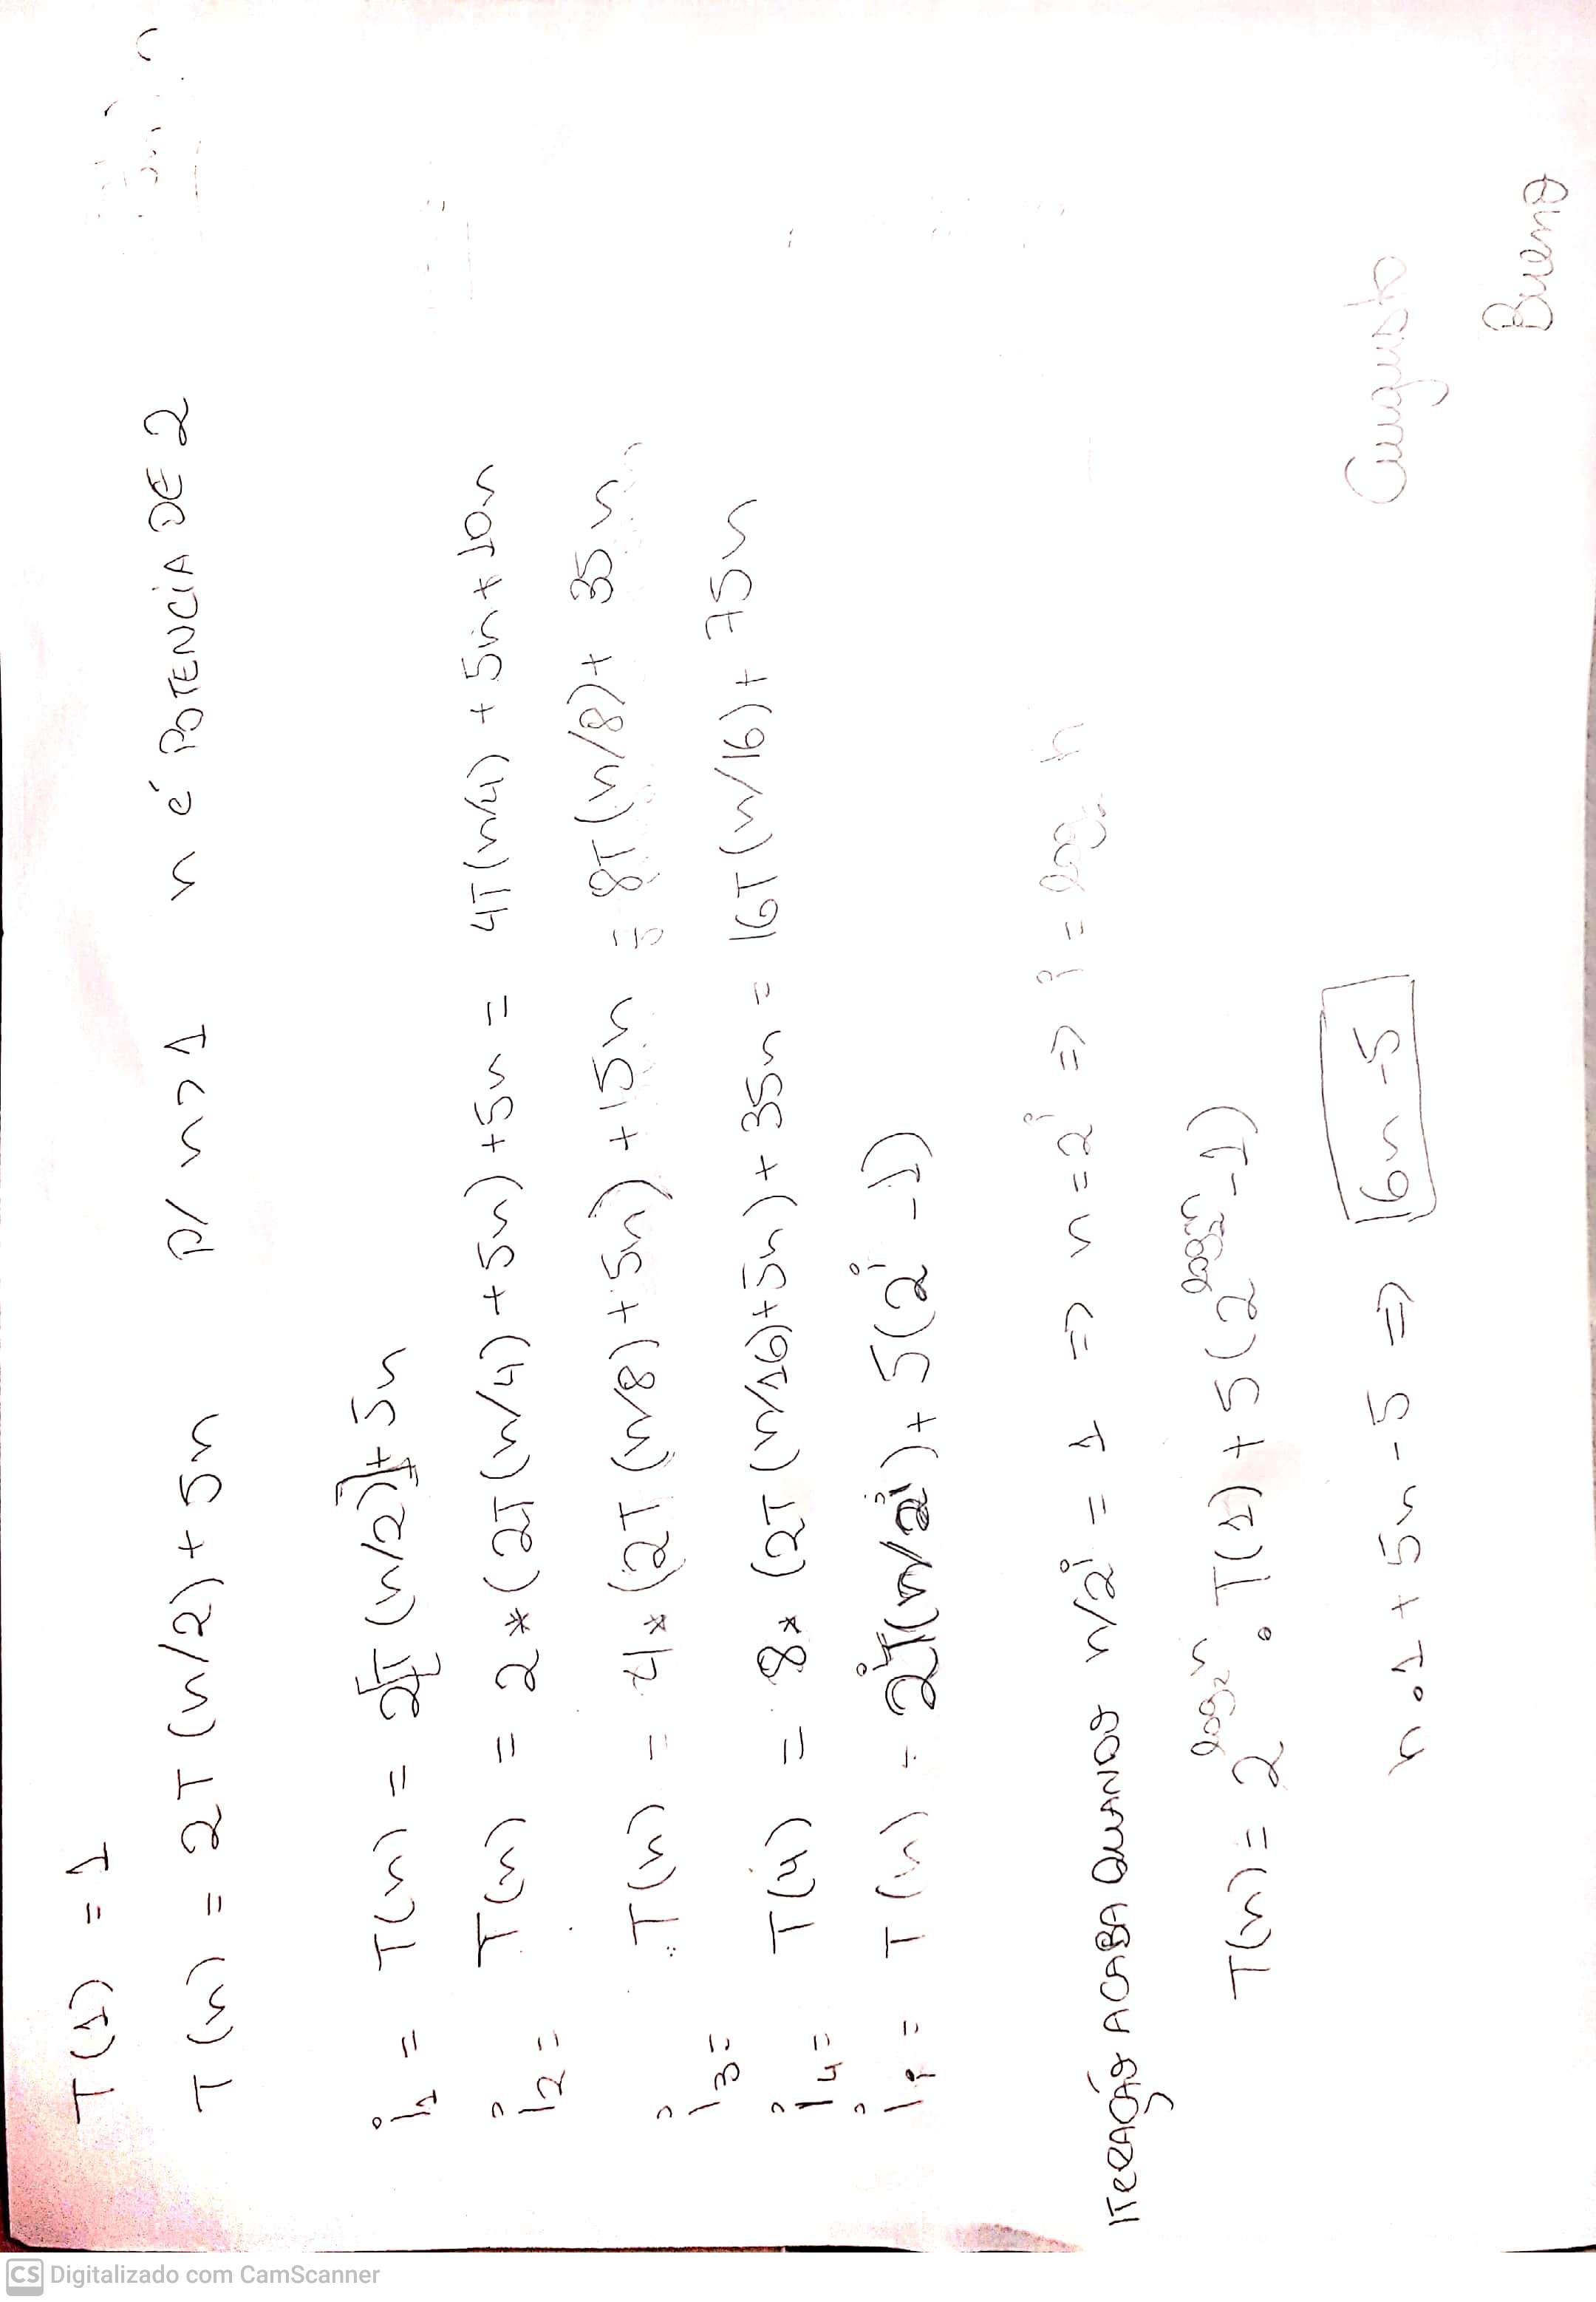 T(1) = 1
T(n) = 2T(n/2) + 5n p/ n>1 n é POTENCIA DE 2
i1 = T(n) = 2[T(n/2)]+5n
i2 = T(n) = 2*(2T(n/4)+5n)+5n = 4T(n/4) + 5n + 10n
i3= T(n) = 4*(2T(n/8)+5n)+15n = 8T(n/8)+ 35n
i4= T(n) = 8*(2T(n/16)+5n)+35n = 16T(n/16)+ 75n
ii= T(n) = 2^i T(n/2^i)+5(2^i-1)
ITERAÇÃO ACABA QUANDO n/2^i = 1 => n=2^i => i = log₂ n
T(n) = 2^log₂n . T(1) + 5(2^log₂n -1)
n.1 + 5n - 5 => 6n-5
Augusto
Bueno
CS Digitalizado com CamScanner